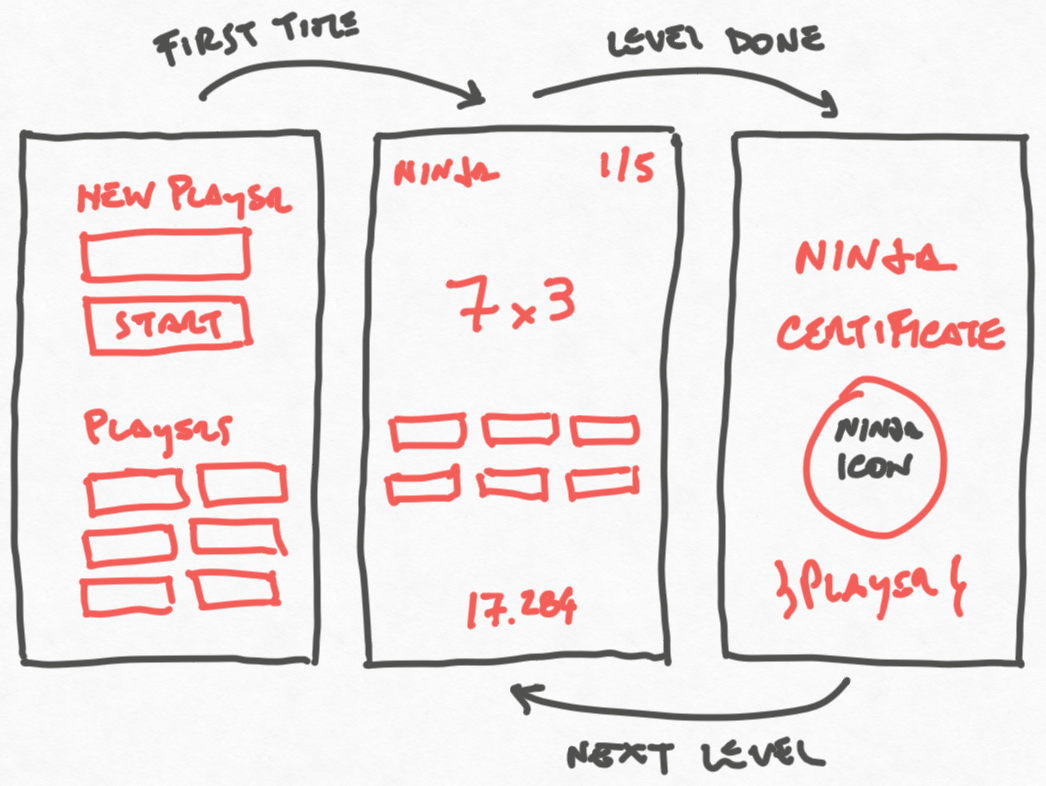 FIRST TIME
LEVEL DONE
NEW PLAYER
START
PLAYERS
NINJA 1/5
7x3
17.284
NINJA
CERTIFICATE
NINJA
ICON
}PLAYER{
NEXT LEVEL